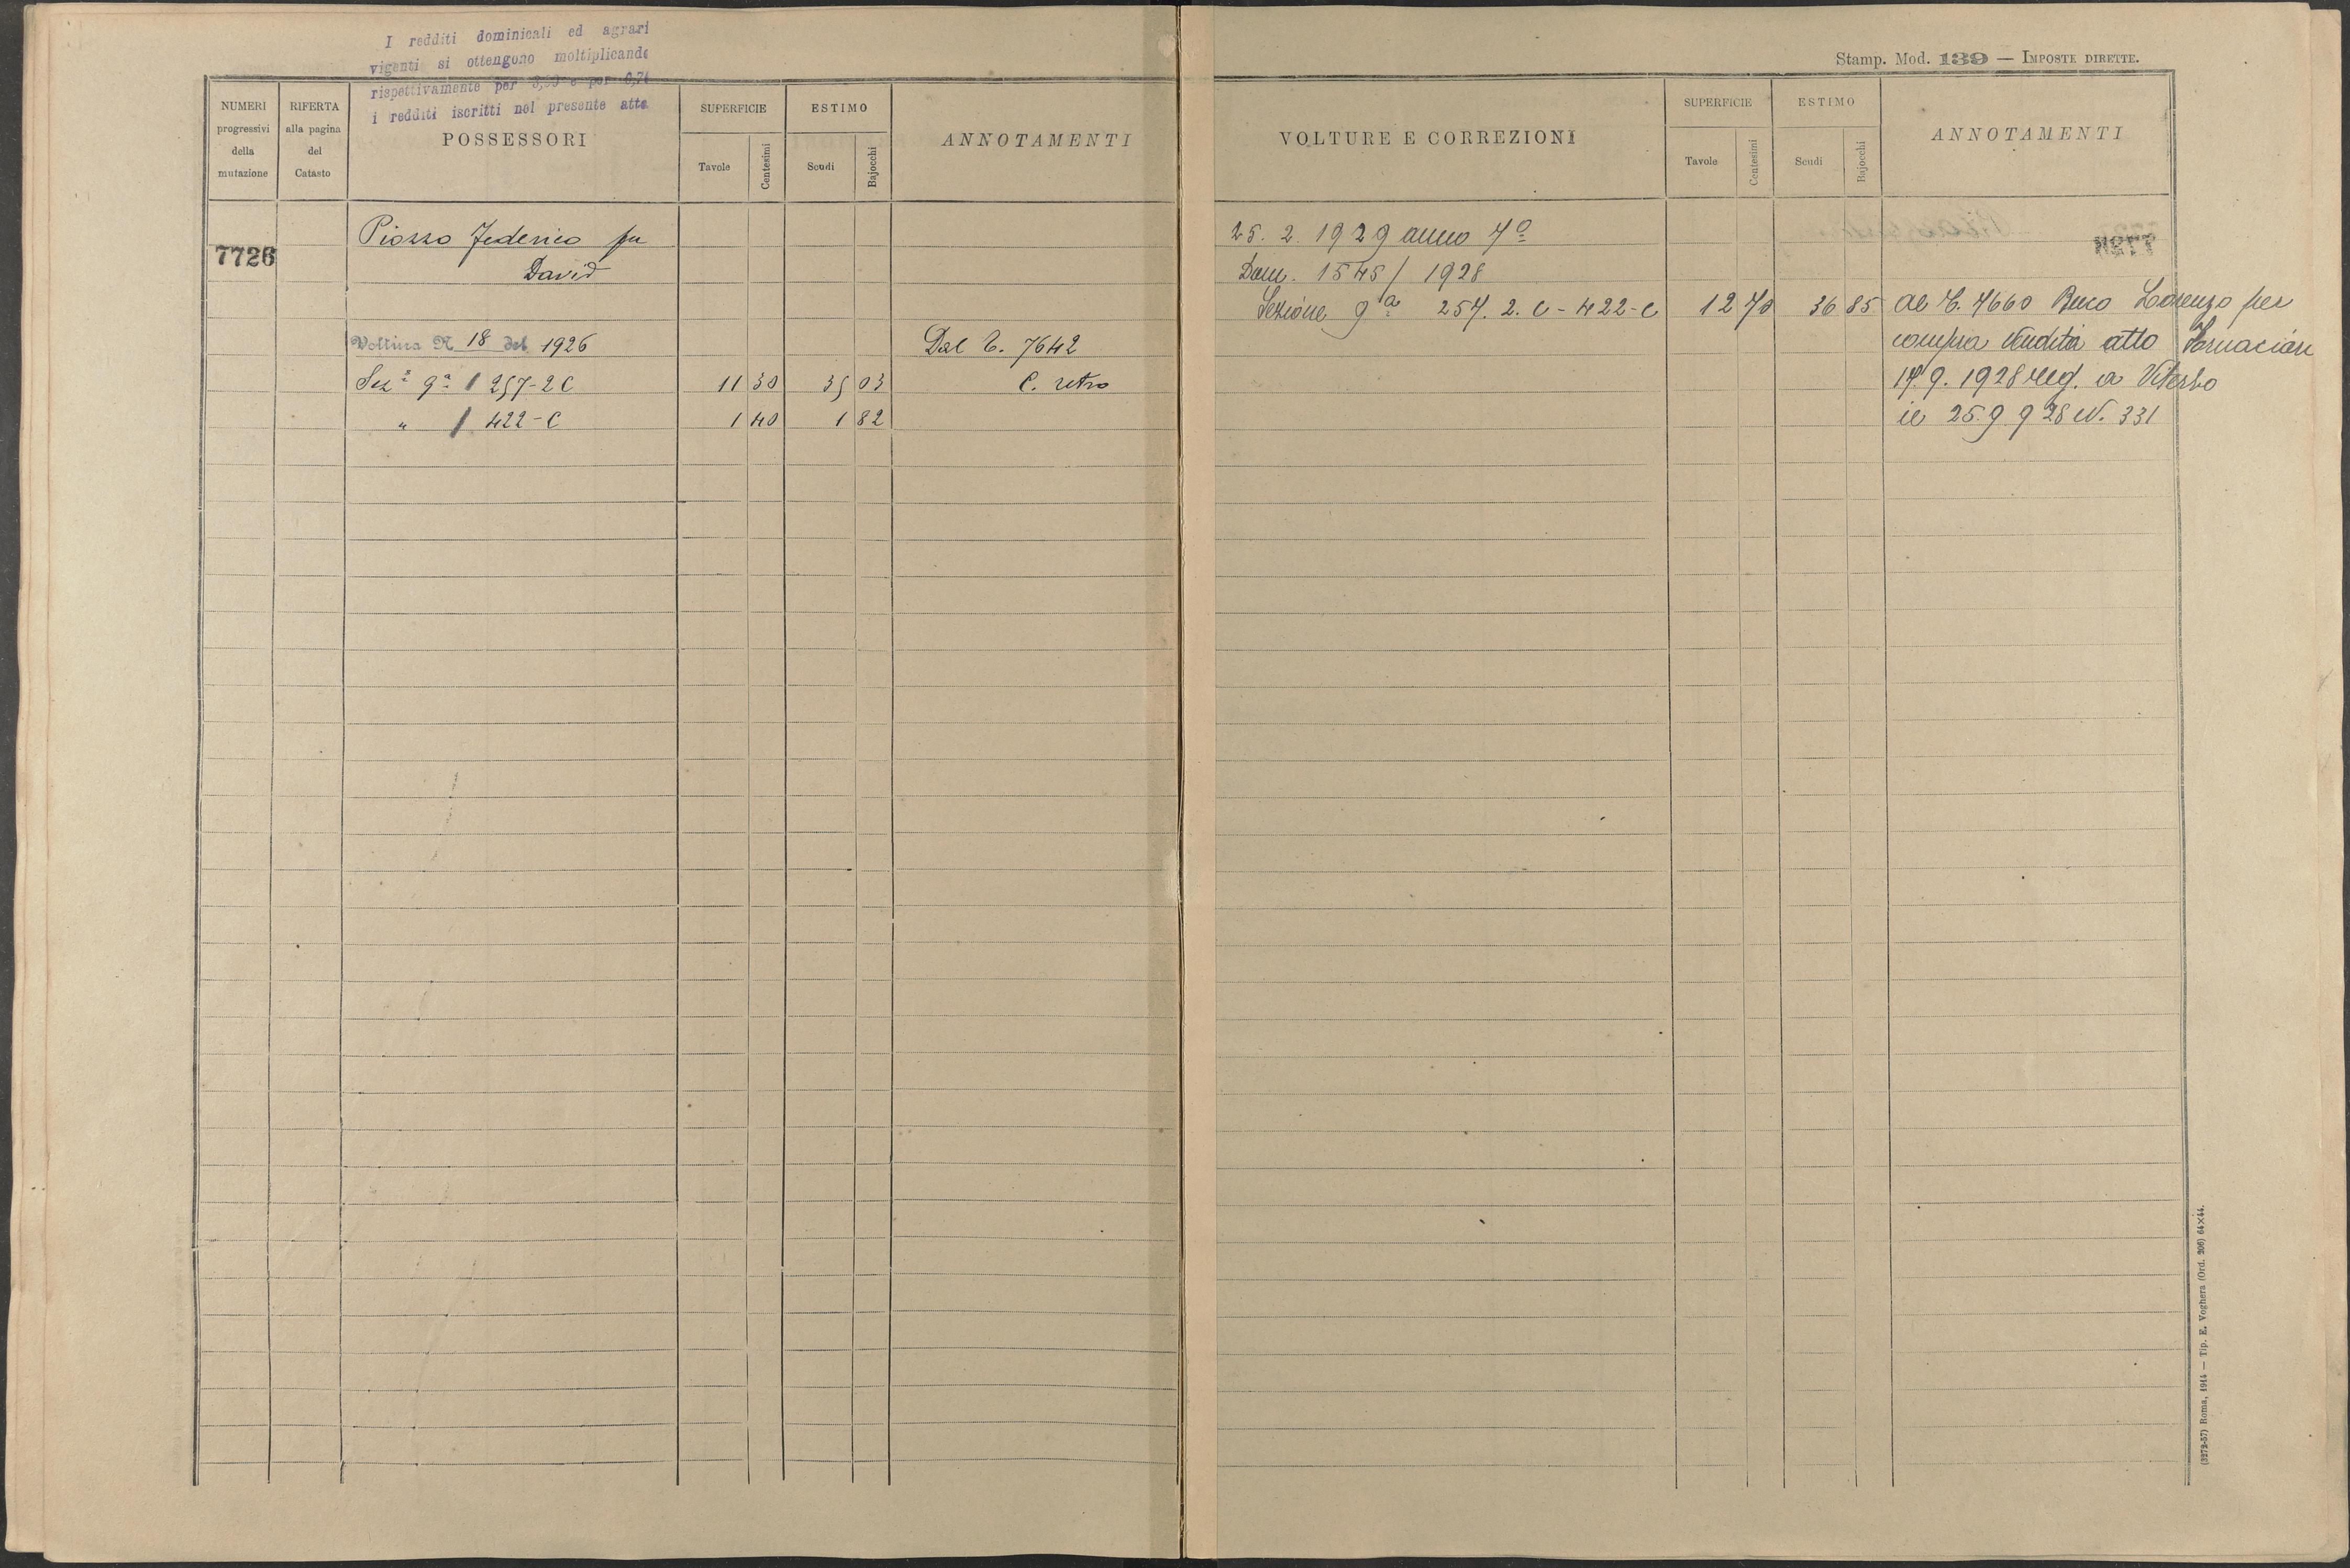 I redditi dominicali ed agrari
vigenti si ottengono moltiplicando
rispettivamente per e per
i redditi iscritti nel presente atto
Stamp. Mod. 139 — IMPOSTE DIRETTE.
NUMERI progressivi della mutazione
RIFERTA alla pagina del Catasto
POSSESSORI
SUPERFICIE
Tavole
Centesimi
ESTIMO
Scudi
Bajocchi
ANNOTAMENTI
VOLTURE E CORREZIONI
SUPERFICIE
Tavole
Centesimi
ESTIMO
Scudi
Bajocchi
ANNOTAMENTI
7726
Piozzo Federico fu
David
Voltura N 18 del 1926
Dal C. 7642
Sez.e 9a 257-2C 11 30 35 03 C. retro
" 422-C 1 40 1 82
25. 2. 1929 anno 7o
Dom. 1545/1928
Sezione 9a 257. 2. C - 422-C 12 70 36 85 al C. 7660 Lorenzo per
compra vendita atto
14.9.1928 reg. a Viterbo
il 25.9.928 N. 331
(3272-57) Roma, 1914 — Tip. E. Voghera (Ord. 206) 64×44.